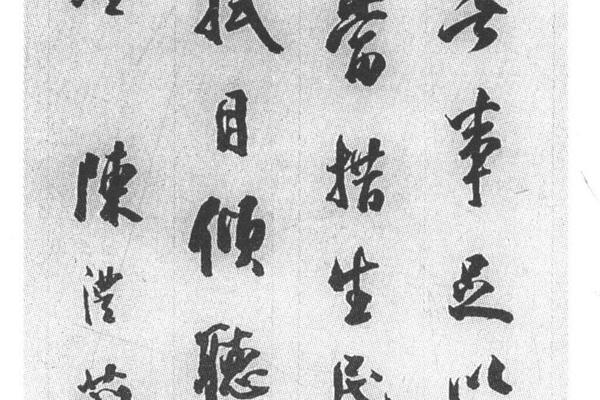 事足以
措生民
拭目傾聽
陳澧